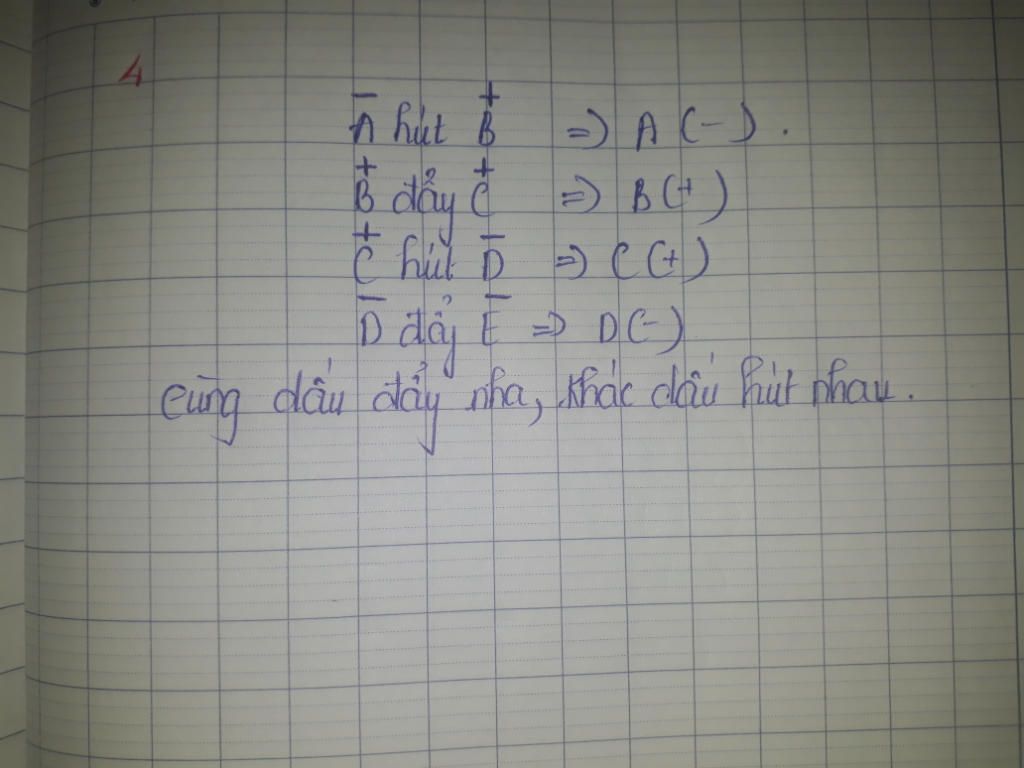 4
− +
A hút B => A (−).
+ +
B đẩy C => B (+)
+ −
C hút D => C (+)
− −
D đẩy E => D (−)
cùng dấu đẩy nha, khác dấu hút nhau.